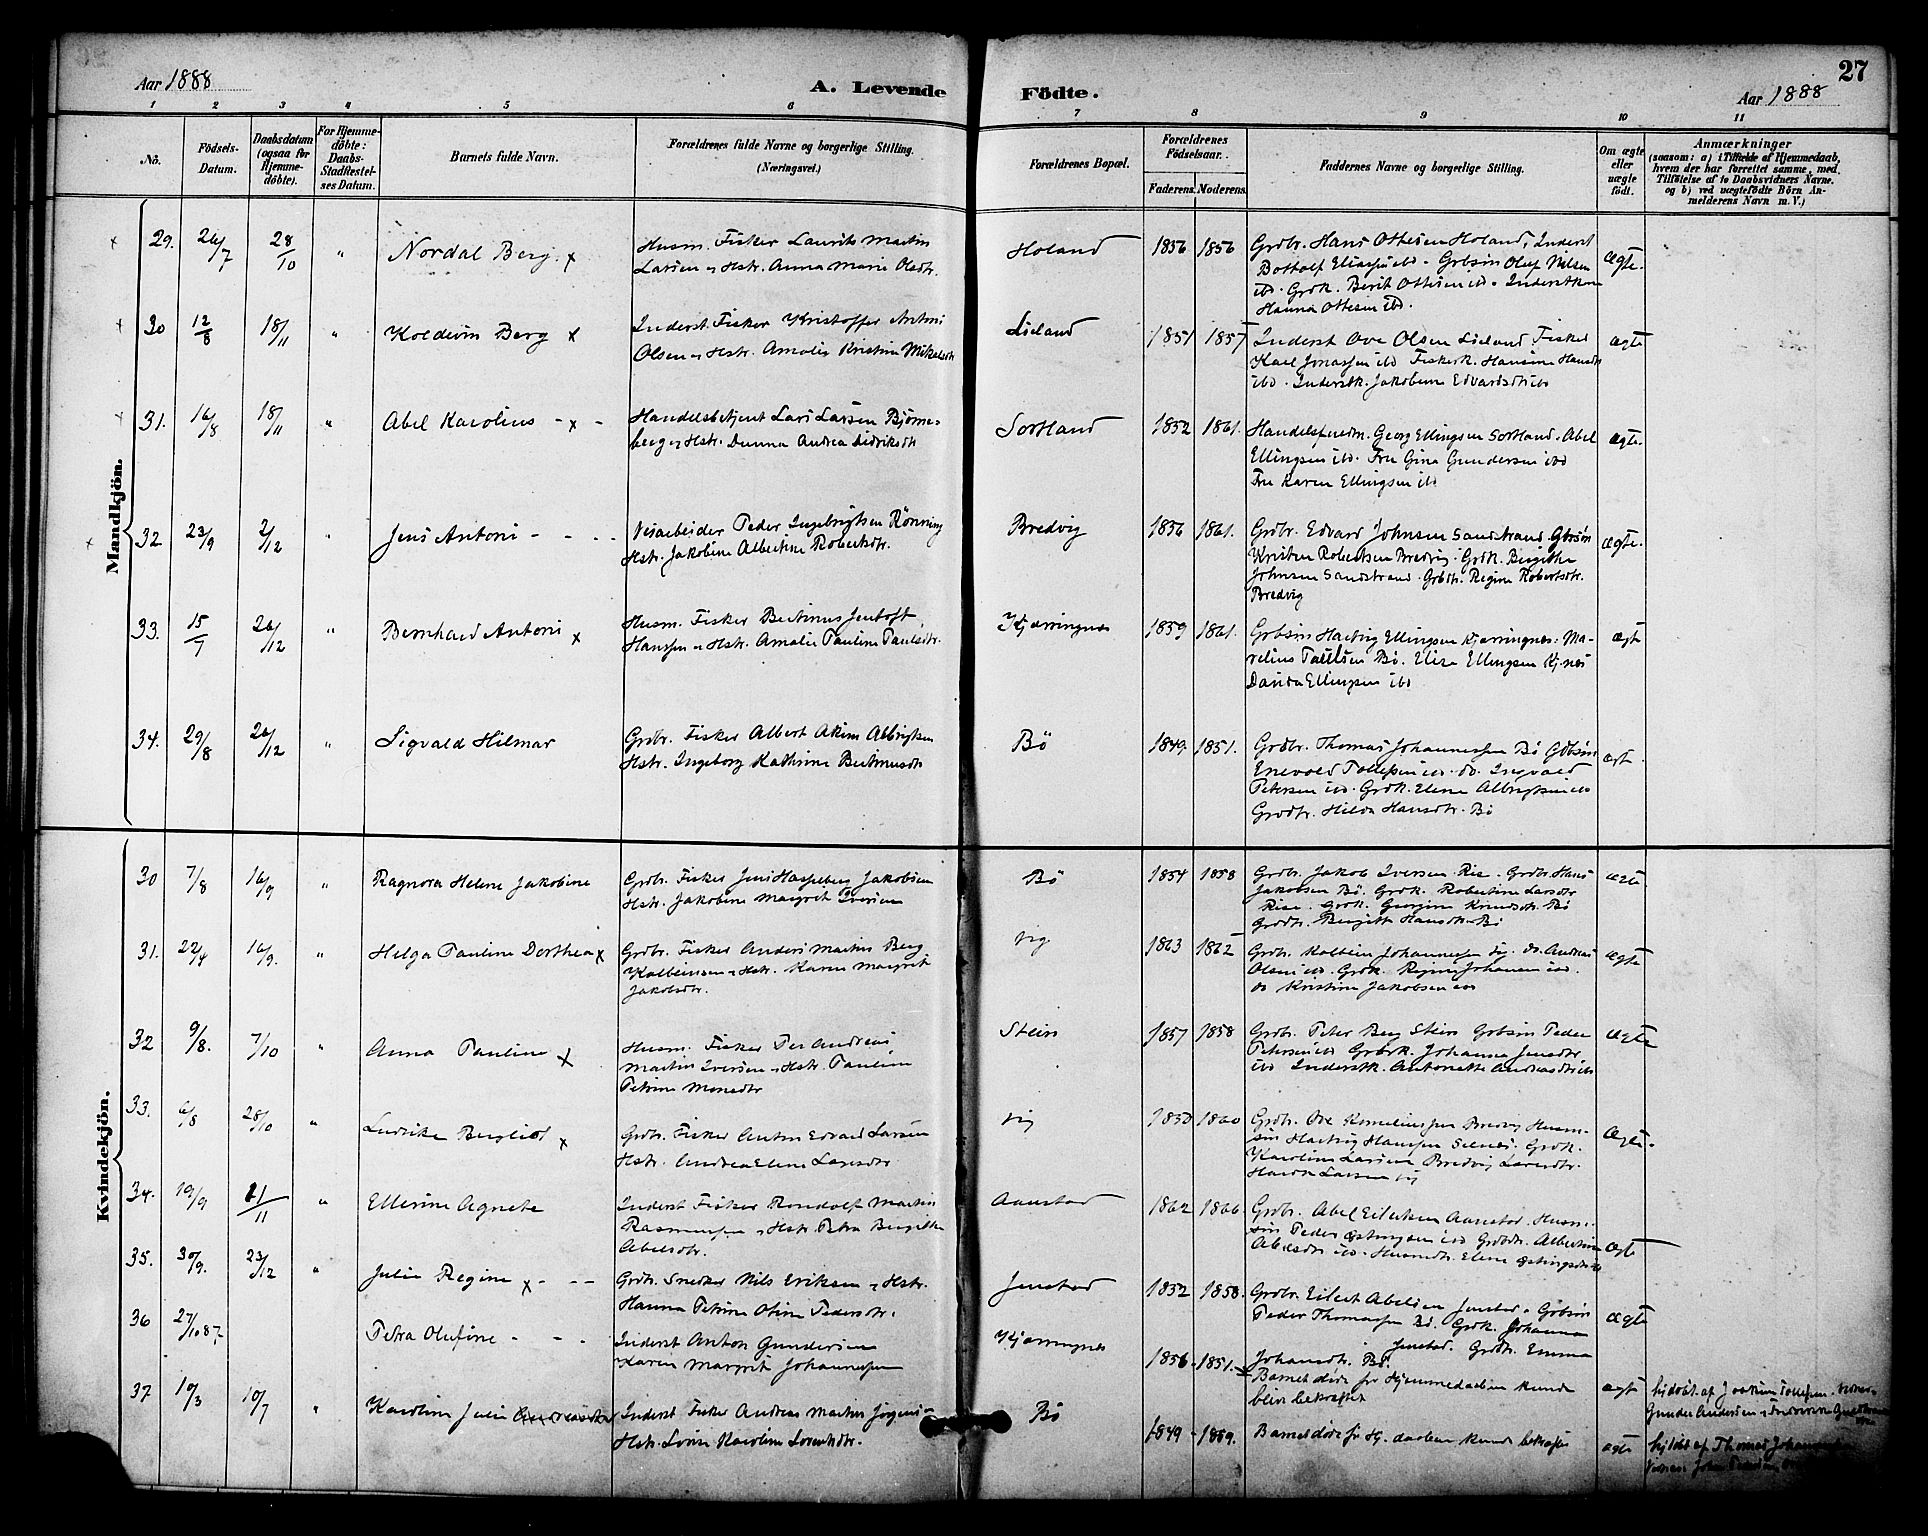 27
Aar 1888
A. Levende Födte.
Aar 1888
1 2 3 4 5 6 7 8 9 10 11
No.
Födsels-Datum.
Daabsdatum (ogsaa for Hjemme-döbte).
For Hjemme-döbte: Daabs-Stadfæstel-ses Datum.
Barnets fulde Navn.
Forældrenes fulde Navne og borgerlige Stilling. (Næringsvei.)
Forældrenes Bopæl.
Forældrenes Födselsaar.
Faderens. Moderens.
Faddernes Navne og borgerlige Stilling.
Om ægte eller uægte födt.
Anmærkninger
(saasom: a) i Tilfælde af Hjemmedaab,
hvem der har forrettet samme, med
Tilföielse af to Daabsvidners Navne.
og b) ved uægtefödte Börn An-
melderens Navn m. V.)
Mandkjön.
29. 26/7 28/10 " Nordal Berg x
Husm. Fisker Laurits Martin
Larsen og Hstr. Anna Marie Olsdtr.
Holand 1856 1856
Grdbr. Hans Ottesen Holand, Inderst
ibd. Grdk. Berit Ottesen ibd. Inderstkone
Hanna Ottesen ibd.
Ægte.
30 12/8 18/11 " Koldevin Berg x
Inderst Fisker Kristoffer Antoni
Olsen og Hstr. Amalie Kristine Mikelsdtr
Lieland 1851 1857
Inderst Ove Olsen Lieland Fisker
Karl Jonassen ibd Fiskerk. Hansine Hansdtr
ibd. Inderstk. Jakobine Edvardsdtr ibd
Ægte
31. 16/8 18/11 " Abel Karolius - x -
Handelsbetjent Lars Larsen Björne-
berg og Hstr. Dunna Andrea Didriksdtr
Sortland 1852 1861.
Georg Ellingsen Sortland. Abel
Ellingsen ibd. Fru Gina Gundersen ibd
Fru Karen Ellingsen ibd
Ægte.
32 23/9 2/12 " Jens Antoni - - - -
Veiarbeider Peder Ingebrigtsen Rönning
Hstr. Jakobine Albertine Robertsdtr.
Bredvig 1856 1861.
Grdbr. Edvard Johnsen Sandstrand Gbrsön
Kristen Robertsen Bredvig. Grdk. Birgitha
Johnsen Sandstrand. Grbdtr. Regine Robertsdtr.
Bredvig
Ægte.
33. 15/7 26/12 " Bernhard Antoni x
Husm. Fisker Bertinus Jentoft
Hanssen og Hstr. Amalie Pauline Paulsdtr.
Kjerringnes 1859 1861.
Grbsön Hartvig Ellingsen Kjerringnes. Ma-
relius Paulsen Bö. Elise Ellingsen Kj.nes
Davida Ellingsen ibd
Ægt
34. 29/8 26/12 " Sigvald Hilmar
Grdbr. Fisker Albert Akim Albrigtsen
Hstr. Ingeborg Kathrine Bertinusdtr
Bö 1849 1851.
Grdbr. Thomas Johannessen Bö Gdbsön
Enevold Tollefsen ibd. do. Ingvald
Petersen ibd. Grdk. Elena Albrigtsen ibd
Grdbtr. Hilda Hansdtr. Bö
Ægt.
Kvindekjön.
30 7/8 16/9 " Ragnora Helene Jakobine
Grdbr. Fisker Jens Hasselberg Jakobsen
Hstr. Jakobine Margrit Iversen
Bö 1854 1858
Grdbr. Jakob Iversen Rise. Grdbr. Hans
Jakobsen Bö. Grdk. Robertine Larsdtr
Rise. Grdk. Georgine Knudsdtr. Bö
Grdbtr. Birgitte Hansdtr. Bö
Ægte
31. 22/4 16/9. " Helga Pauline Dorthea x
Grdbr. Fisker Anders Martin Berg
Kolbeinsen og Hstr. Karen Margrit
Jakobsdtr.
Vig 1863 1862
Grdbr. Kolbein Johannessen Vig. do. Andreas
Olsen ibd. Grdk. Regine Johansen ibd.
do Kristine Jakobsen ibd
Ægte
32 9/8. 7/10 " Anna Pauline x
Husm. Fisker Per Andreas
Martin Iversen og Hstr. Pauline
Petrine Monsdtr
Stein 1857 1858
Grdbr. Peter Berg Stein Grbsön Peder
Petersen ibd Grbrk. Johanna Jensdtr
ibd Inderstk. Antonette Andreasdtr ibd
Ægte
33. 6/8 28/10 " Ludvika Bergliot x
Grdbr. Fisker Anton Edvard Larsen
Hstr. Andrea Elene Larsdtr
Vig 1850 1860
Grdbr. Ove Kornelinssen Bredvig Husm-
sön Hartvig Hanssen Selnes. Grdk.
Karoline Larsen Bredvig Larsdtr.
Larsen Vig
Ægte.
34. 19/9 11/11 " Ellerine Agnete
Inderst Fisker Rondolf Martin
Rasmussen og Hstr Petra Birgitte
Abelsdtr.
Aanstad 1862 1866
Grdbr. Abel Eilertsen Aanstad. Husm-
sön Peder Östingsen ibd Grdbdtr. Albertine
Abelsdtr ibd. Husmdtr. Elene Östingsdtr ibd
Ægt
35. 30/9. 23/12 " Julie Regine x - - -
Grdbr. Snedker Nils Eriksen og Hstr.
Hanna Petrine Oline Pedersdtr.
Jenstad 1852 1858.
Grdbr. Eilert Abelsen Jenstad. Grbsön
Peder Thomassen Bö. Grdk. Johanna
Jenstad. Grdtr. Emma
Johansdtr. Bö.
Ægte
36 27/10 87. Petra Olufine - - -
Inderst Anton Gundersen
Karen Margrit Johannessen
Kjerringnes 1856. 1851.
Barnet döde för Hjemmedaaben kunde
blive bekræftet
Ægt
hjdöbt. af Joakim Tollefsen.
Gunder Andersen
37 19/3 10/7 " Karoline Julie Andreasdtr
Inderst Fisker Andreas Martin Jörgens-
Hstr. Lovise Karoline Lorentsdtr.
Bö 1849 1859.
Barnet döde för Hj. daaben kunde bekræftes
Ægte
hjdöbt af Thomas Johannessen